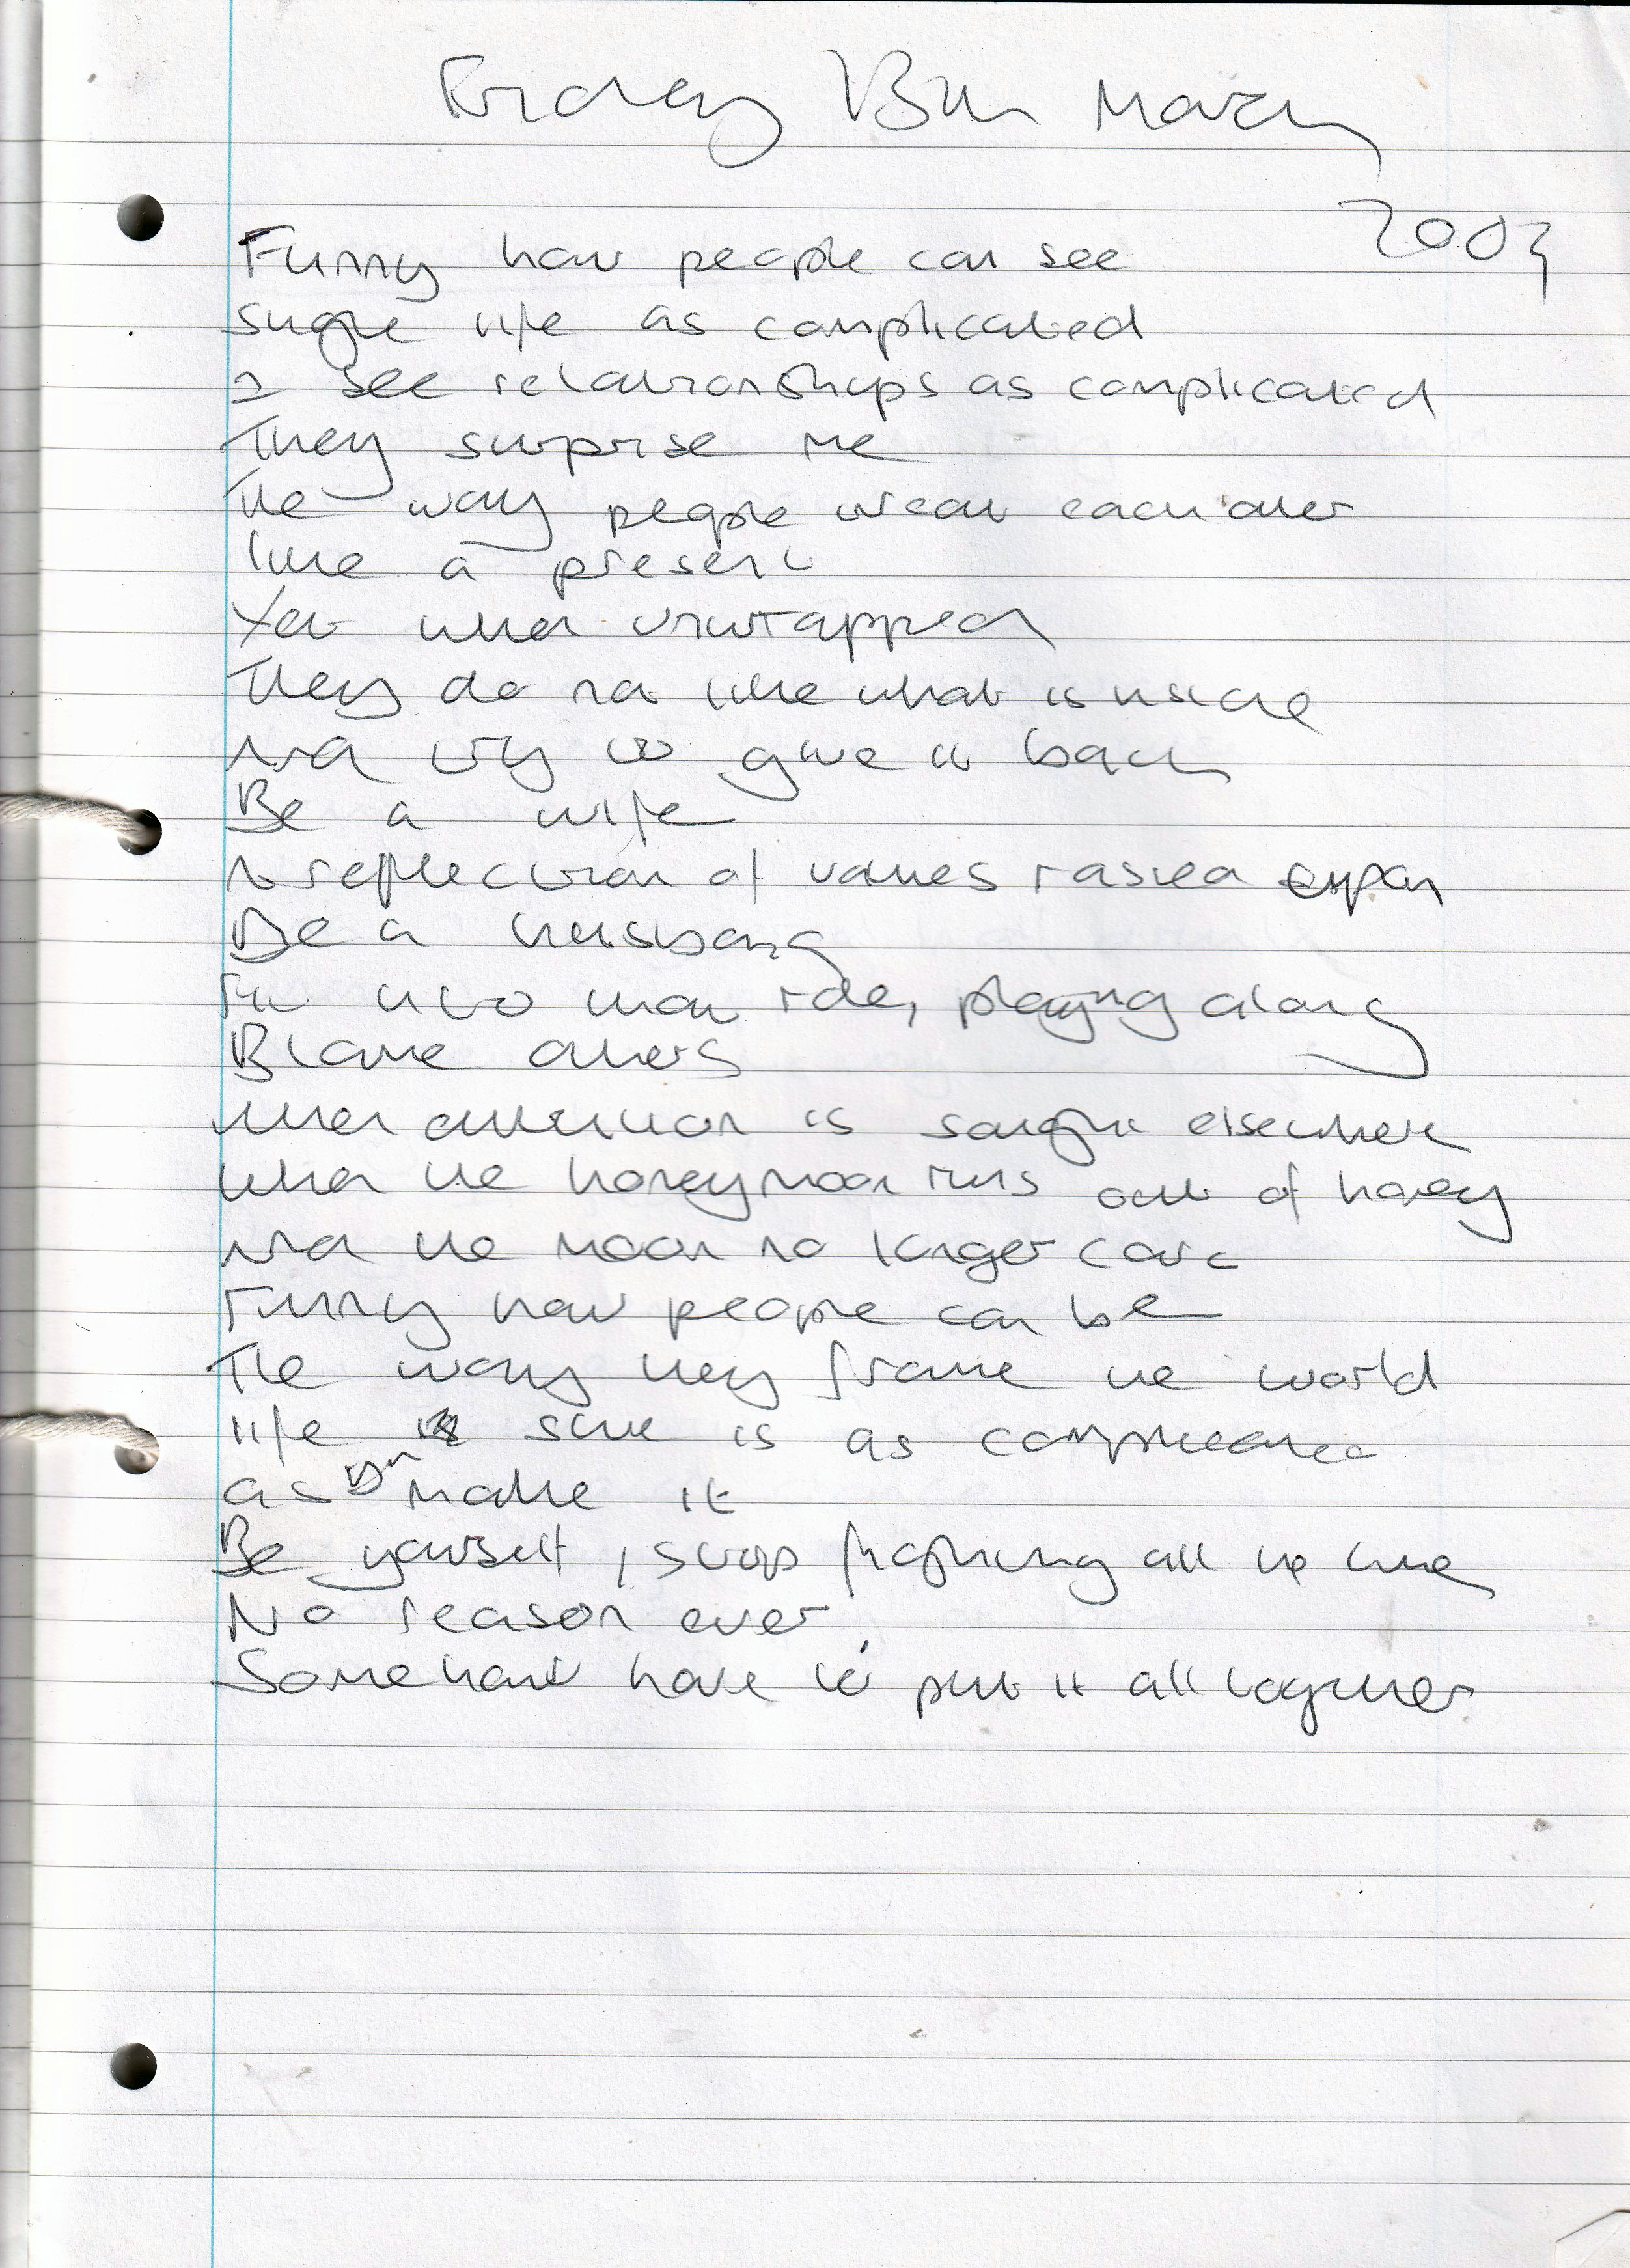 Friday 13th March
2009
Funny how people can see
single life as complicated
I see relationships as complicated
They surprise me
The way people wear each other
like a present
Yet when unwrapped
They do not like what is inside
And try to give it back
Be a wife
A reflection of values rasied upon
Be a husband
Fit into that role, playing along
Blame others
When attention is sought elsewhere
When the honeymoon runs out of honey
And the moon no longer
Funny how people can be
The way they frame the world
life is as complicated
as make it
Be yourself, stop fighting all the time
No reason ever
Somehow have to put it all together